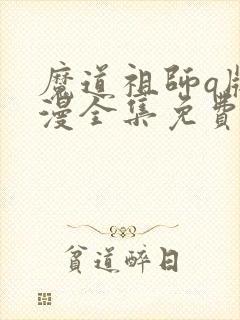 魔道祖師q版
漫全集免費
貧道醉日